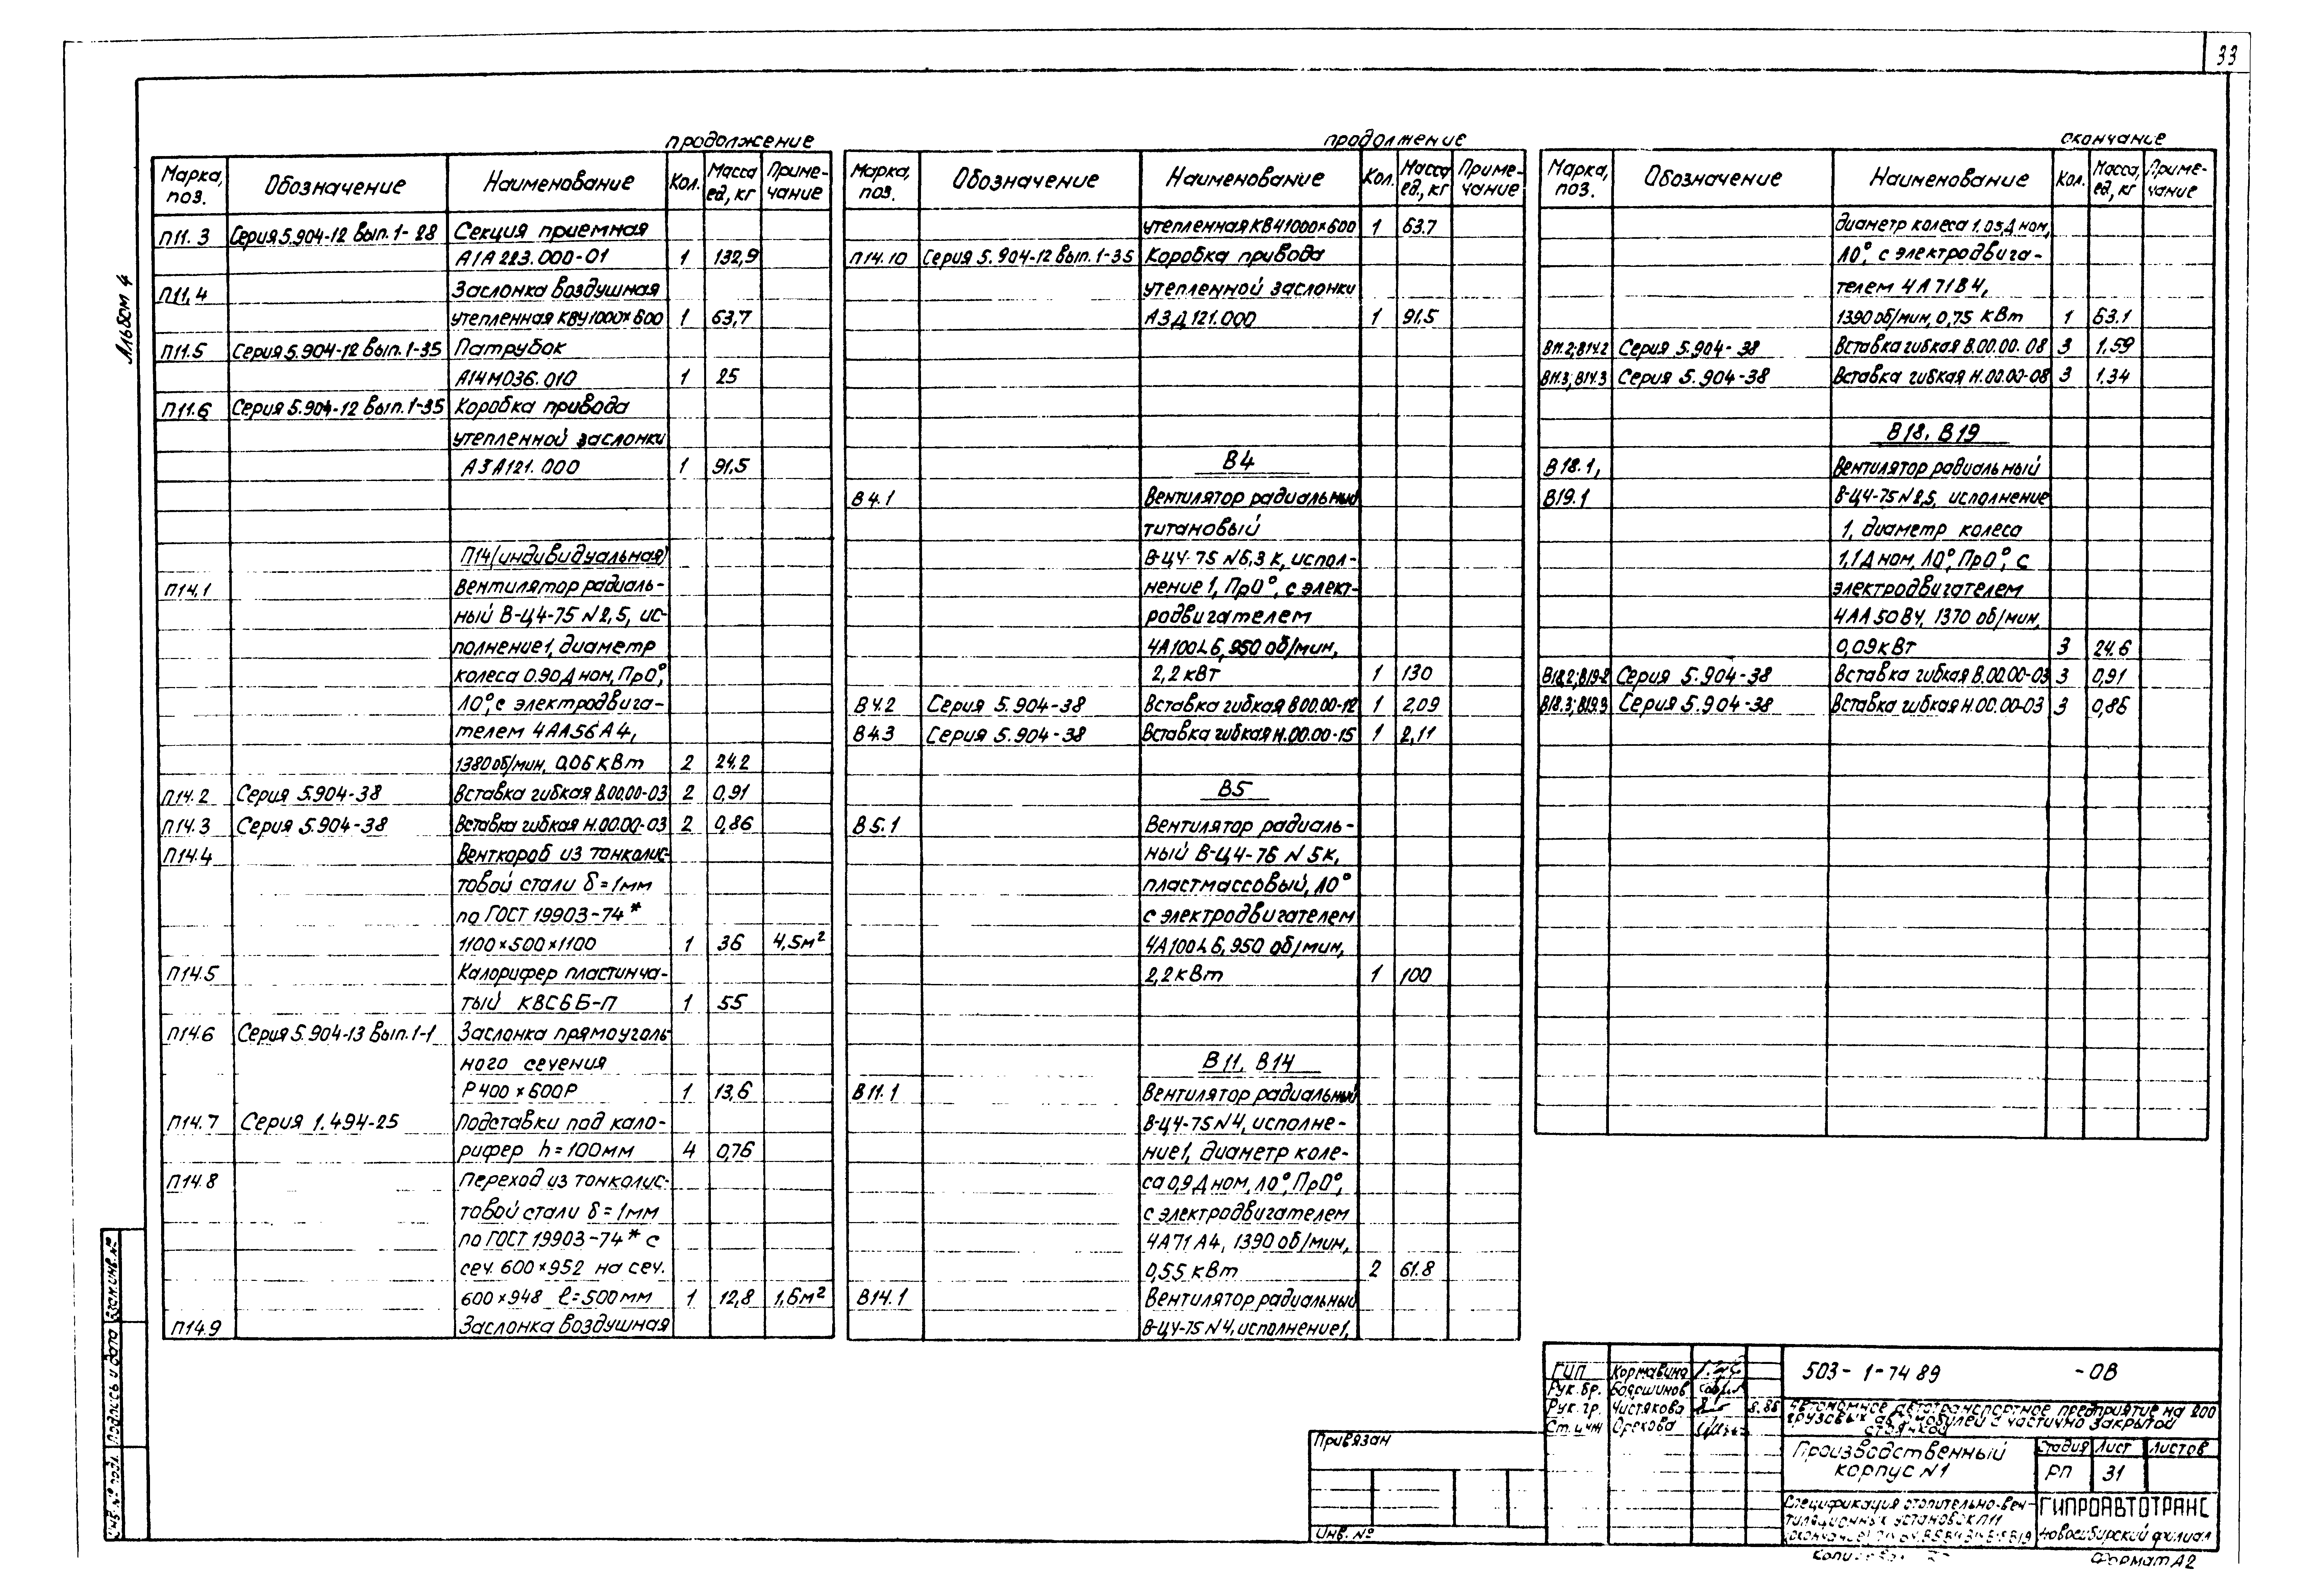 33
Альбом 4
продолжение
Марка, поз. Обозначение Наименование Кол. Масса ед., кг Примечание
П11.3 Серия 5.904-12 вып. 1-28 Секция приемная
А1А 223.000-01 1 132,9
П11.4 Заслонка воздушная
утепленная КВУ1000×600 1 63,7
П11.5 Серия 5.904-12 вып. 1-35 Патрубок
А14М036.010 1 25
П11.6 Серия 5.904-12 вып. 1-35 Коробка привода
утепленной заслонки
А3А121.000 1 91,5
П14(индивидуальная)
П14.1 Вентилятор радиаль-
ный В-Ц4-75 N2,5, ис-
полнение1, диаметр
колеса 0.90Дном, Пр0°,
Л0°, с электродвига-
телем 4АА56А4,
1380 об/мин, 0.06 кВт 2 24.2
П14.2 Серия 5.904-38 Вставка гибкая В.00.00-03 2 0,91
П14.3 Серия 5.904-38 Вставка гибкая Н.00.00-03 2 0,86
П14.4 Венткороб из тонколис-
товой стали δ=1мм
по ГОСТ 19903-74*
1100×500×1100 1 36 4,5м²
П14.5 Калорифер пластинча-
тый КВС6Б-П 1 55
П14.6 Серия 5.904-13 вып. 1-1 Заслонка прямоуголь
ного сечения
Р400×600Р 1 13,6
П14.7 Серия 1.494-25 Подставки под кало-
рифер h=100мм 4 0,76
П14.8 Переход из тонколис-
товой стали δ=1мм
по ГОСТ 19903-74* с
сеч. 600×952 на сеч.
600×948 ℓ=500мм 1 12,8 1,6м²
П14.9 Заслонка воздушная
продолжение
Марка, поз. Обозначение Наименование Кол. Масса ед., кг Примечание
утепленная КВЧ1000×600 1 63.7
П14.10 Серия 5.904-12 вып. 1-35 Коробка привода
утепленной заслонки
А3Д121.000 1 91,5
В4
В4.1 Вентилятор радиальный
титановый
В-Ц4-75 N6,3К, испол-
нение1, Пр0°, с элект-
родвигателем
4А100L6, 950 об/мин,
2,2 кВт 1 130
В4.2 Серия 5.904-38 Вставка гибкая В00.00-12 1 2,09
В4.3 Серия 5.904-38 Вставка гибкая Н.00.00-15 1 2,11
В5
В5.1 Вентилятор радиаль-
ный В-Ц4-76 N5К,
пластмассовый, Л0°
с электродвигателем
4А100L6, 950 об/мин,
2,2 кВт 1 100
В11, В14
В11.1 Вентилятор радиальный
В-Ц4-75 N4, исполне-
ние1, диаметр коле-
са 0,9 Дном, Л0°, Пр0°,
с электродвигателем
4А71А4, 1390 об/мин,
0,55 кВт 2 61.8
В14.1 Вентилятор радиальный
В-Ц4-75 N4, исполнение1,
окончание
Марка, поз. Обозначение Наименование Кол. Масса, ед, кг Примечание
диаметр колеса 1.05Дном,
Л0°, с электродвига-
телем 4А71В4,
1390 об/мин, 0,75 кВт 1 63.1
В11.2; В14.2 Серия 5.904-38 Вставка гибкая В.00.00.08 3 1,59
В11.3; В14.3 Серия 5.904-38 Вставка гибкая Н.00.00-08 3 1,34
В18, В19
В18.1, Вентилятор радиальный
В19.1 В-Ц4-75 N2,5, исполнение
1, диаметр колеса
1,1Дном, Л0°, Пр0°, с
электродвигателем
4АА50В4, 1370 об/мин,
0,09 кВт 3 24.6
В18.2; В19.2 Серия 5.904-38 Вставка гибкая В.00.00-03 3 0,91
В18.3; В19.3 Серия 5.904-38 Вставка гибкая Н.00.00-03 3 0,86
ГИП Кормавина
Рук. бр. Бояршинов
Рук. гр. Чистякова
Ст. инж Орехова
503-1-74 89 -ОВ
Автономное автотранспортное предприятие на 200
грузовых автомобилей с частично закрытой
стоянкой
Производственный
корпус N1
Стадия Лист Листов
РП 31
Спецификация отопительно-вен-
тиляционных установок П11
ГИПРОАВТОТРАНС
Новосибирский филиал
Привязан
Инв. №
Взам. инв. №
Подпись и дата
Инв. № подл.
Формат А2